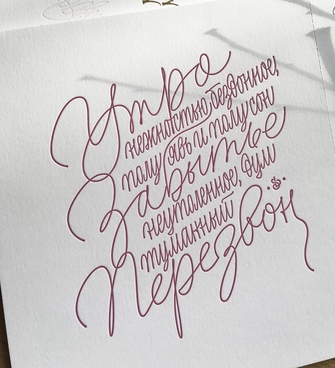 Утро
нежностью бездонное,
полу явь и полу сон
Забытье
неутоленное, дум
туманный
Перезвон